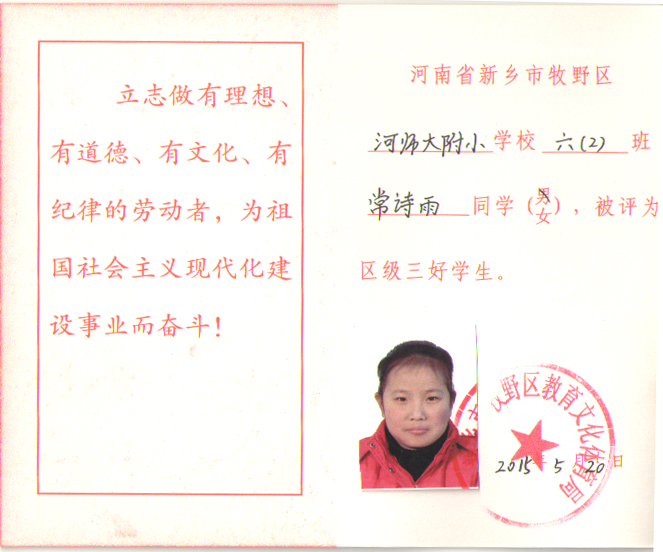 立志做有理想、
有道德、有文化、有
纪律的劳动者，为祖
国社会主义现代化建
设事业而奋斗！
河南省新乡市牧野区
河师大附小学校六(2)班
常诗雨同学(男女)，被评为
区级三好学生。
牧野区教育文化体育局
2015年5月20日